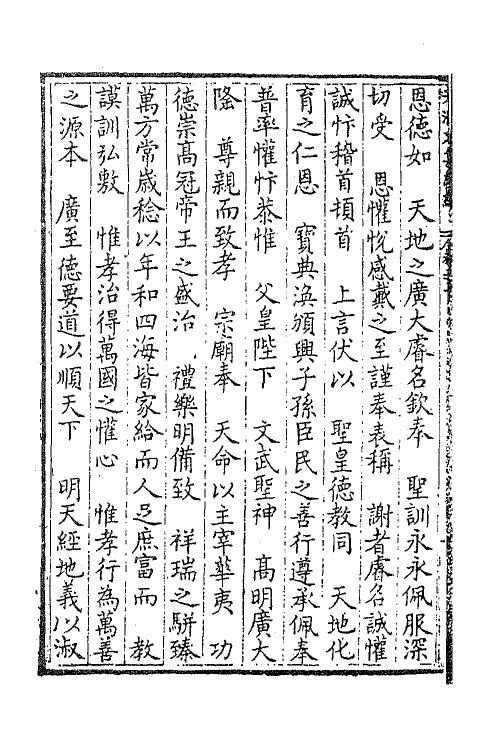 恩德如　天地之廣大睿名欽奉　聖訓永永佩服深
切受　恩懽悅感戴之至謹奉表稱　謝者睿名誠懽
誠忭稽首頓首　上言伏以　聖皇德教同　天地化
育之仁恩　寶典渙頒興子孫臣民之善行遵承佩奉
普率懽忭恭惟　父皇陛下　文武聖神　高明廣大
隆　尊親而致孝　宗廟奉　天命以主宰華夷　功
德崇高冠帝王之盛治　禮樂明備致　祥瑞之駢臻
萬方常歲稔以年和四海皆家給而人足庶富而　教
謨訓弘敷　惟孝治得萬國之懽心　惟孝行為萬善
之源本　廣至德要道以順天下　明天經地義以淑